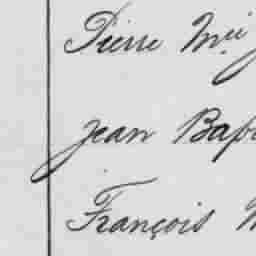 Pierre
Jean Bap
François